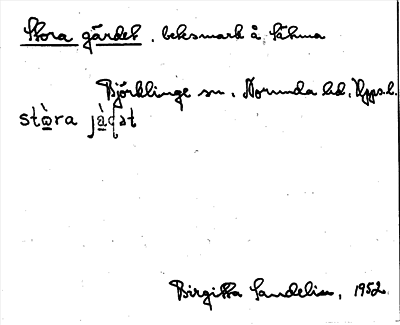 Stora gärdet. beksmark å Låhma
Björklinge sn. Norunda hd. Upps. l.
Birgitta Sandelin, 1952